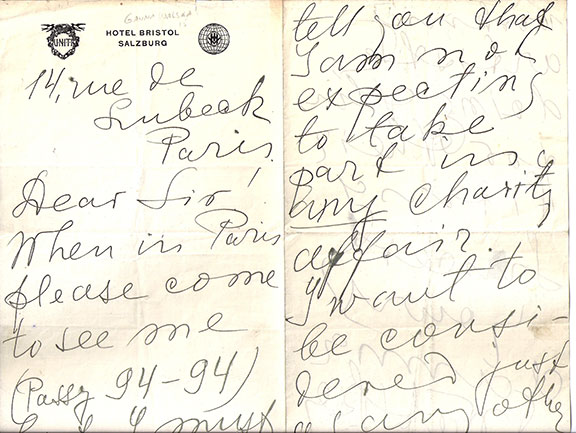 UNITI
HOTEL BRISTOL
SALZBURG
14, rue de
Lubeck
Paris
Dear Sir!
When in Paris
please come
to see me
(Passy 94-94)
must
tell you that
I am not
expecting
to take
part in
any charity
affair.
I want to
be consi-
dered just
as any other